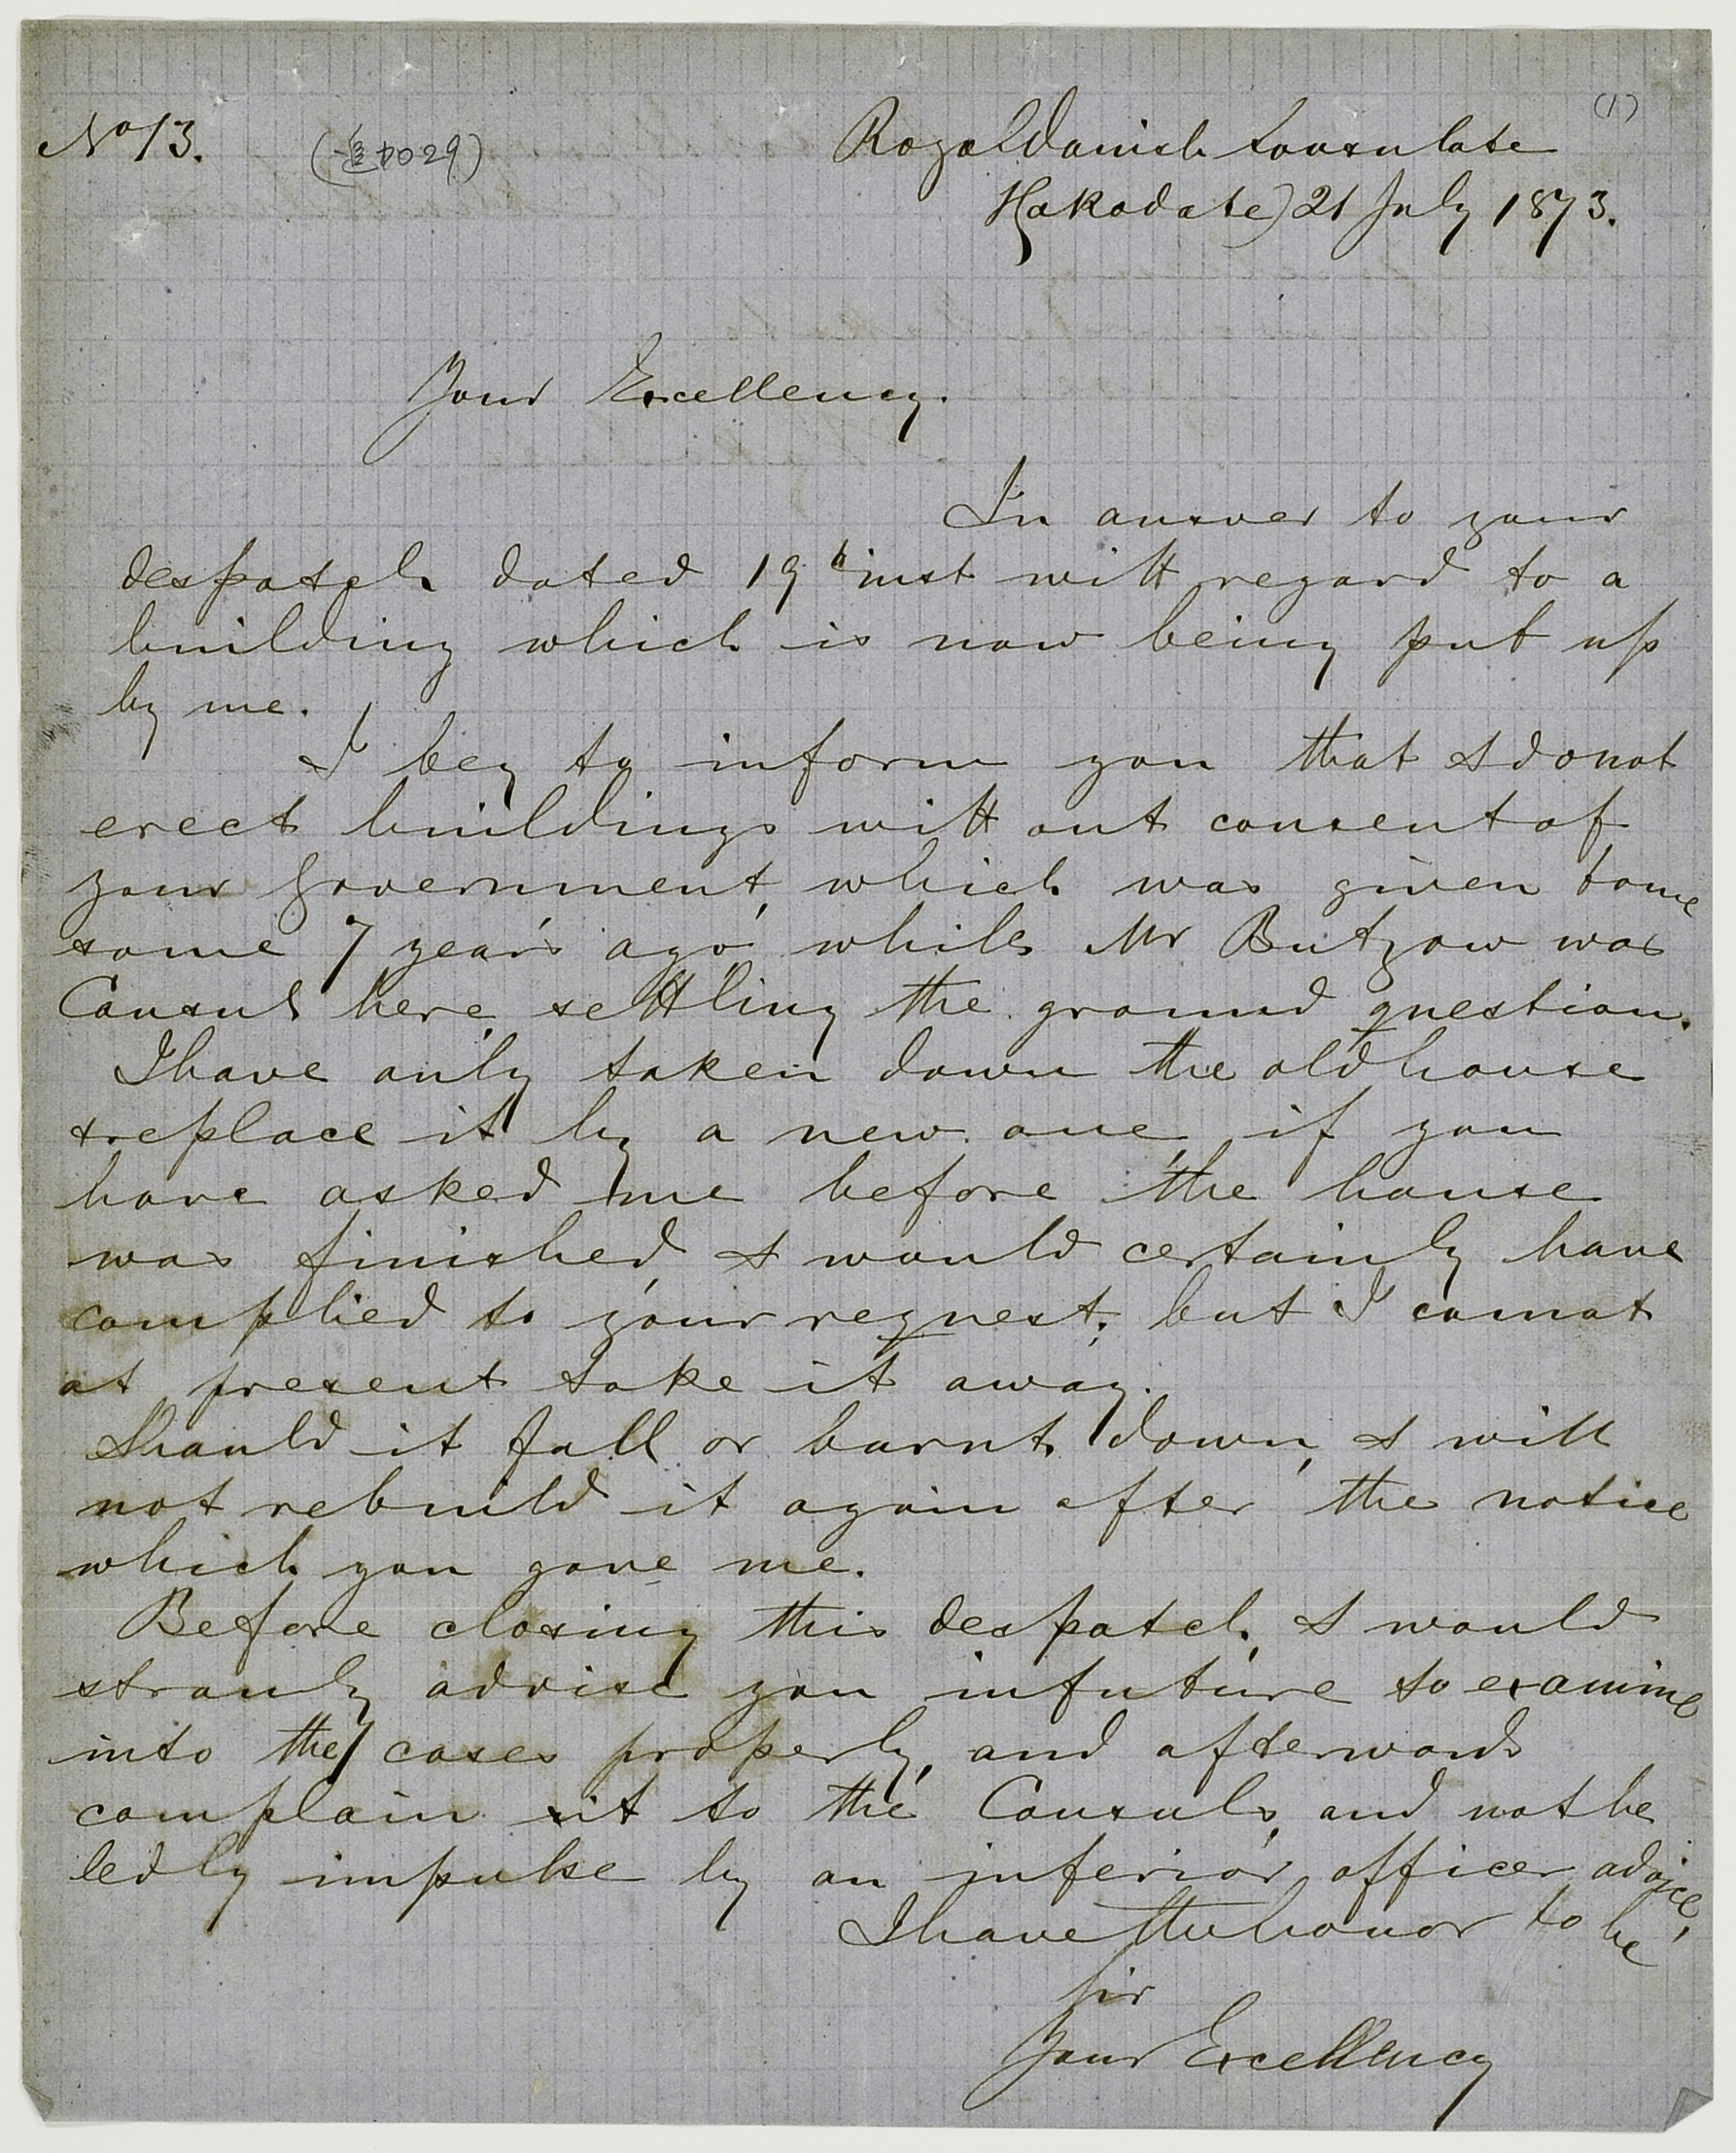 (1)
No 13.
Royal Danish Consulate
Hakodate) 21 July 1873.
Your Excellency.
In answer to your
despatch dated 19th inst with regard to a
building which is now being put up
by me.
I beg to inform you that I do not
erect buildings with out consent of
your Government, which was given to me
some 7 year's ago, while Mr Butzow was
Consul here, settling the ground question.
I have only taken down the old house
& replace it by a new one, if you
have asked me before the house
was finished, I would certainly have
complied to your request; but I cannot
at present take it away.
Should it fall or burnt down, I will
not rebuild it again after the notice
which you gave me.
Before closing this despatch, I would
strongly advise you in future to examine
into the cases properly, and afterwards
complain it to the Consuls, and not be
led by impulse by an inferior officer advice,
I have the honor to be
Sir
Your Excellency